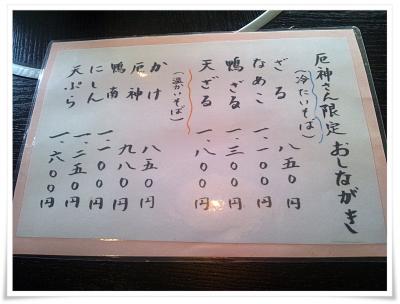 厄神さん限定おしながき
(冷たいそば)
ざる 八五〇円
なめこ 一、一〇〇円
鴨ざる 一、三〇〇円
天ざる 一、八〇〇円
(温かいそば)
かけ 八五〇円
厄神 九八〇円
鴨南 一、一〇〇円
にしん 一、二五〇円
天ぷら 一、六〇〇円